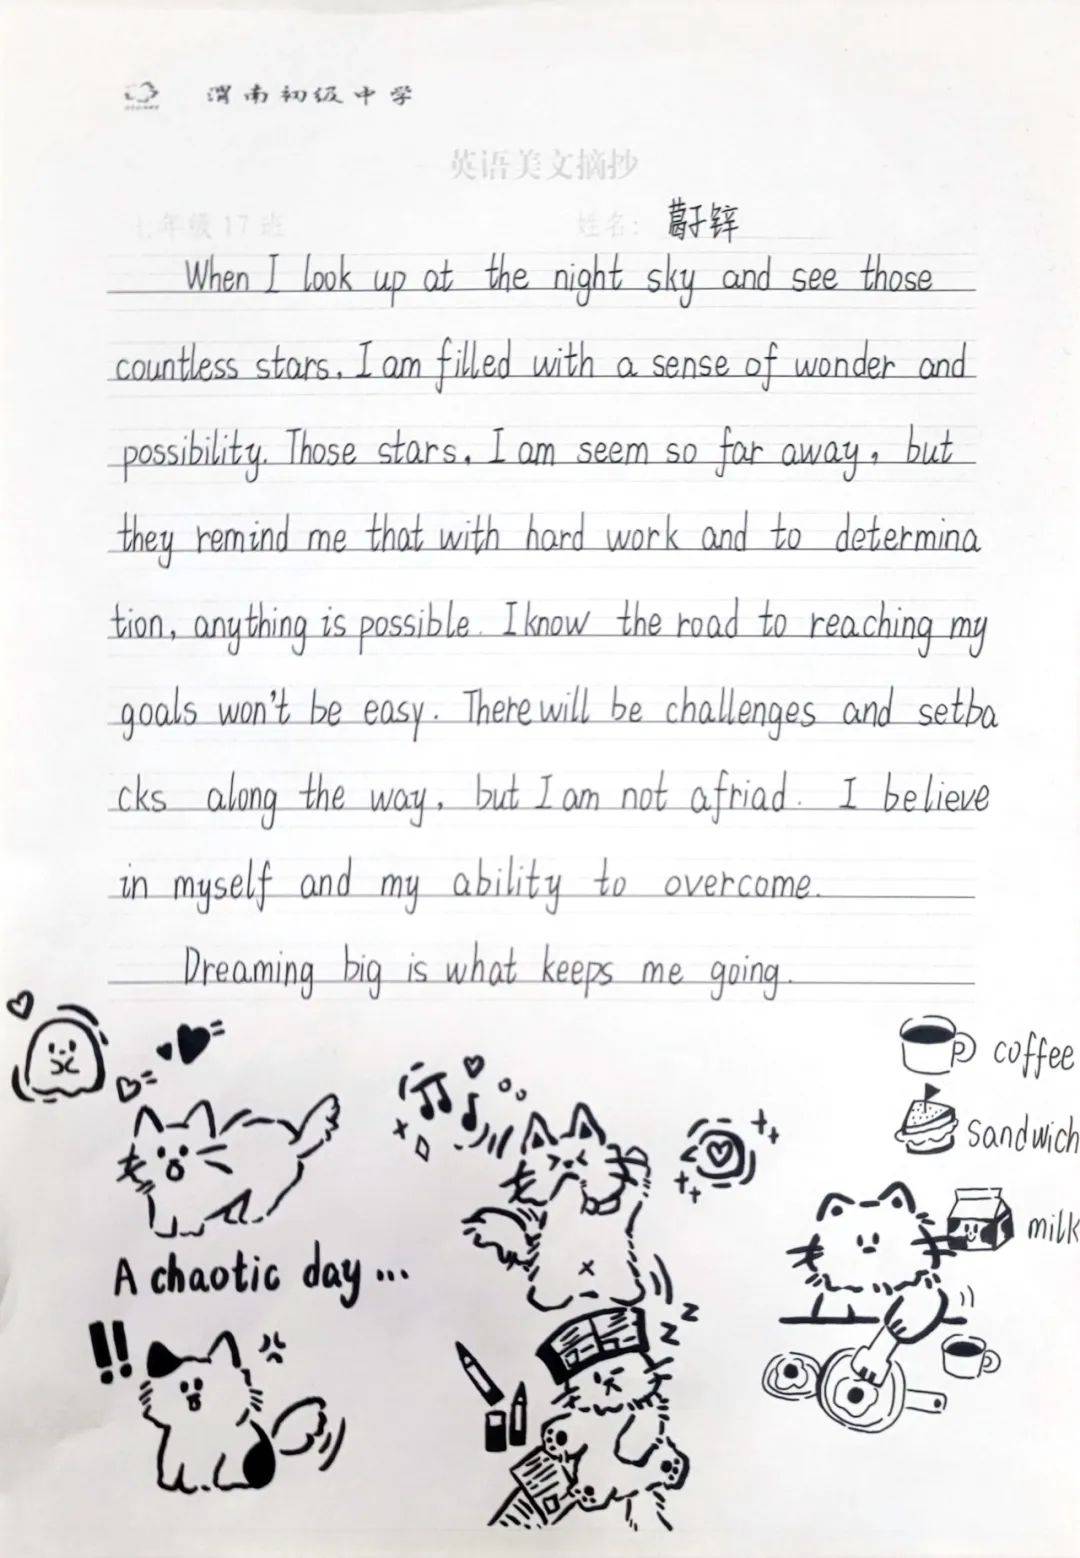 渭南初级中学
英语美文摘抄
七年级17班 姓名: 葛子锌
When I look up at the night sky and see those
countless stars. I am filled with a sense of wonder and
possibility. Those stars. I am seem so far away, but
they remind me that with hard work and to determina
tion, anything is possible. I know the road to reaching my
goals won't be easy. There will be challenges and setba
cks along the way, but I am not afriad. I believe
in myself and my ability to overcome.
Dreaming big is what keeps me going.
coffee
sandwich
milk
A chaotic day...
!!
z
z